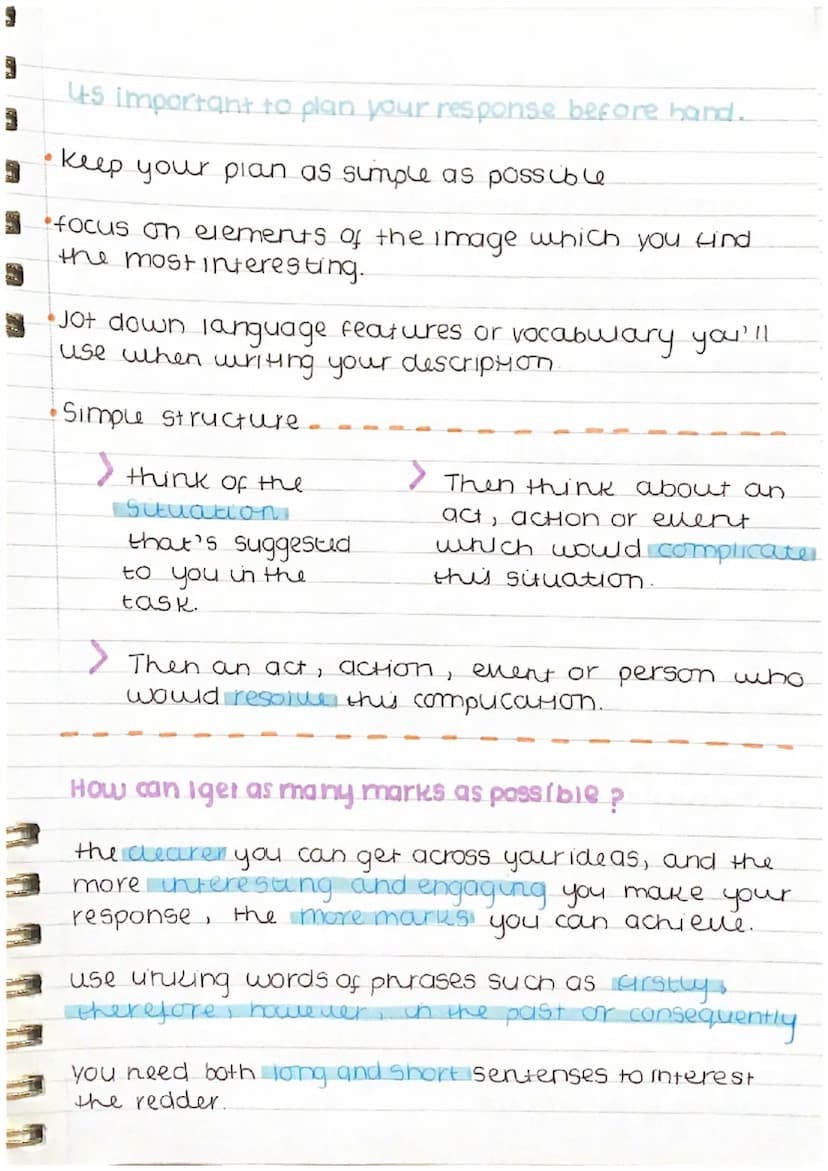 Its important to plan your response before hand.
• Keep your plan as simple as possible
• focus on elements of the image which you find
the most interesting.
• Jot down language features or vocabulary you'll
use when writing your description
• Simple structure
> think of the
situation
that's suggested
to you in the
task.
> Then think about an
act, action or event
which would complicate
this situation.
> Then an act, action, event or person who
would resolve this complication.
How can I get as many marks as possible?
the clearer you can get across your ideas, and the
more interesting and engaging you make your
response, the more marks you can achieve.
use linking words of phrases such as firstly,
therefore, however, in the past or consequently
you need both long and short sentenses to interest
the redder.